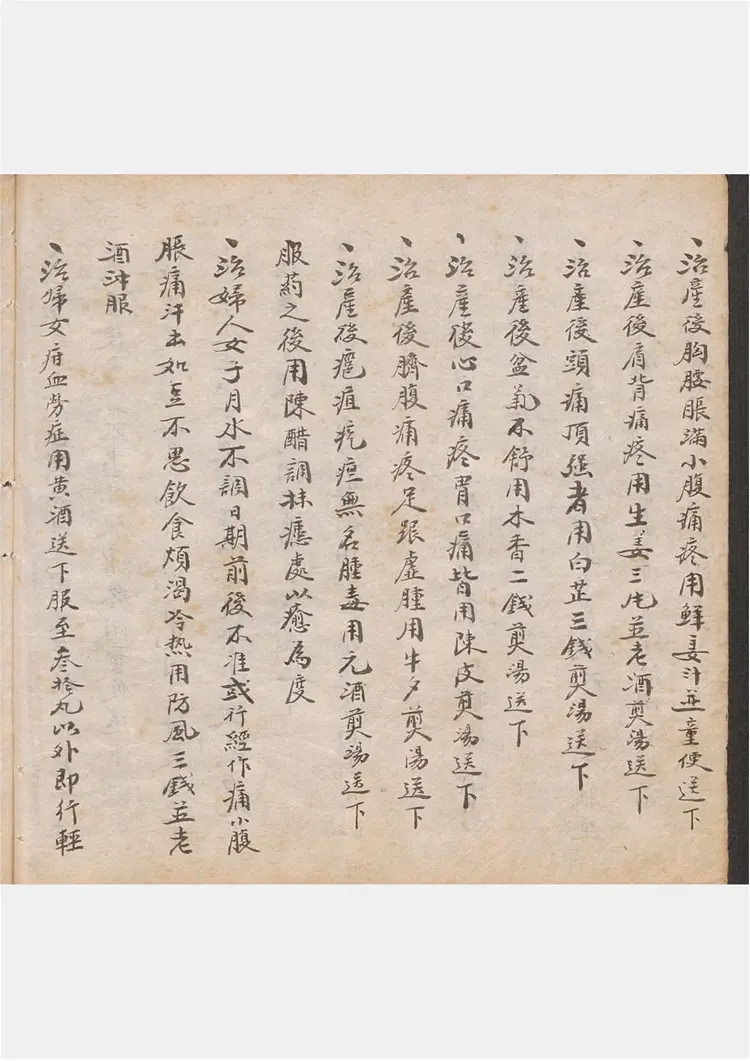 丶治產後胸腰脹滿小腹痛疼用鮮姜汁並童便送下
丶治產後肩背痛疼用生姜三片並老酒煎湯送下
丶治產後頭痛頂强者用白芷三錢煎湯送下
丶治產後盆氣不舒用木香二錢煎湯送下
丶治產後心口痛疼胃口痛皆用陳皮煎湯送下
丶治產後臍腹痛疼足跟虛腫用牛夕煎湯送下
丶治產後疽疙疸無名腫毒用元酒煎湯送下
服葯之後用陳醋調抹處以癒為度
丶治婦人女子月水不調日期前後不准或行經作痛小腹
脹痛汗出如豆不思飲食煩渴冷热用防風三錢並老
酒冲服
丶治婦女血勞症用黄酒送下服至叁拾丸以外即行輕